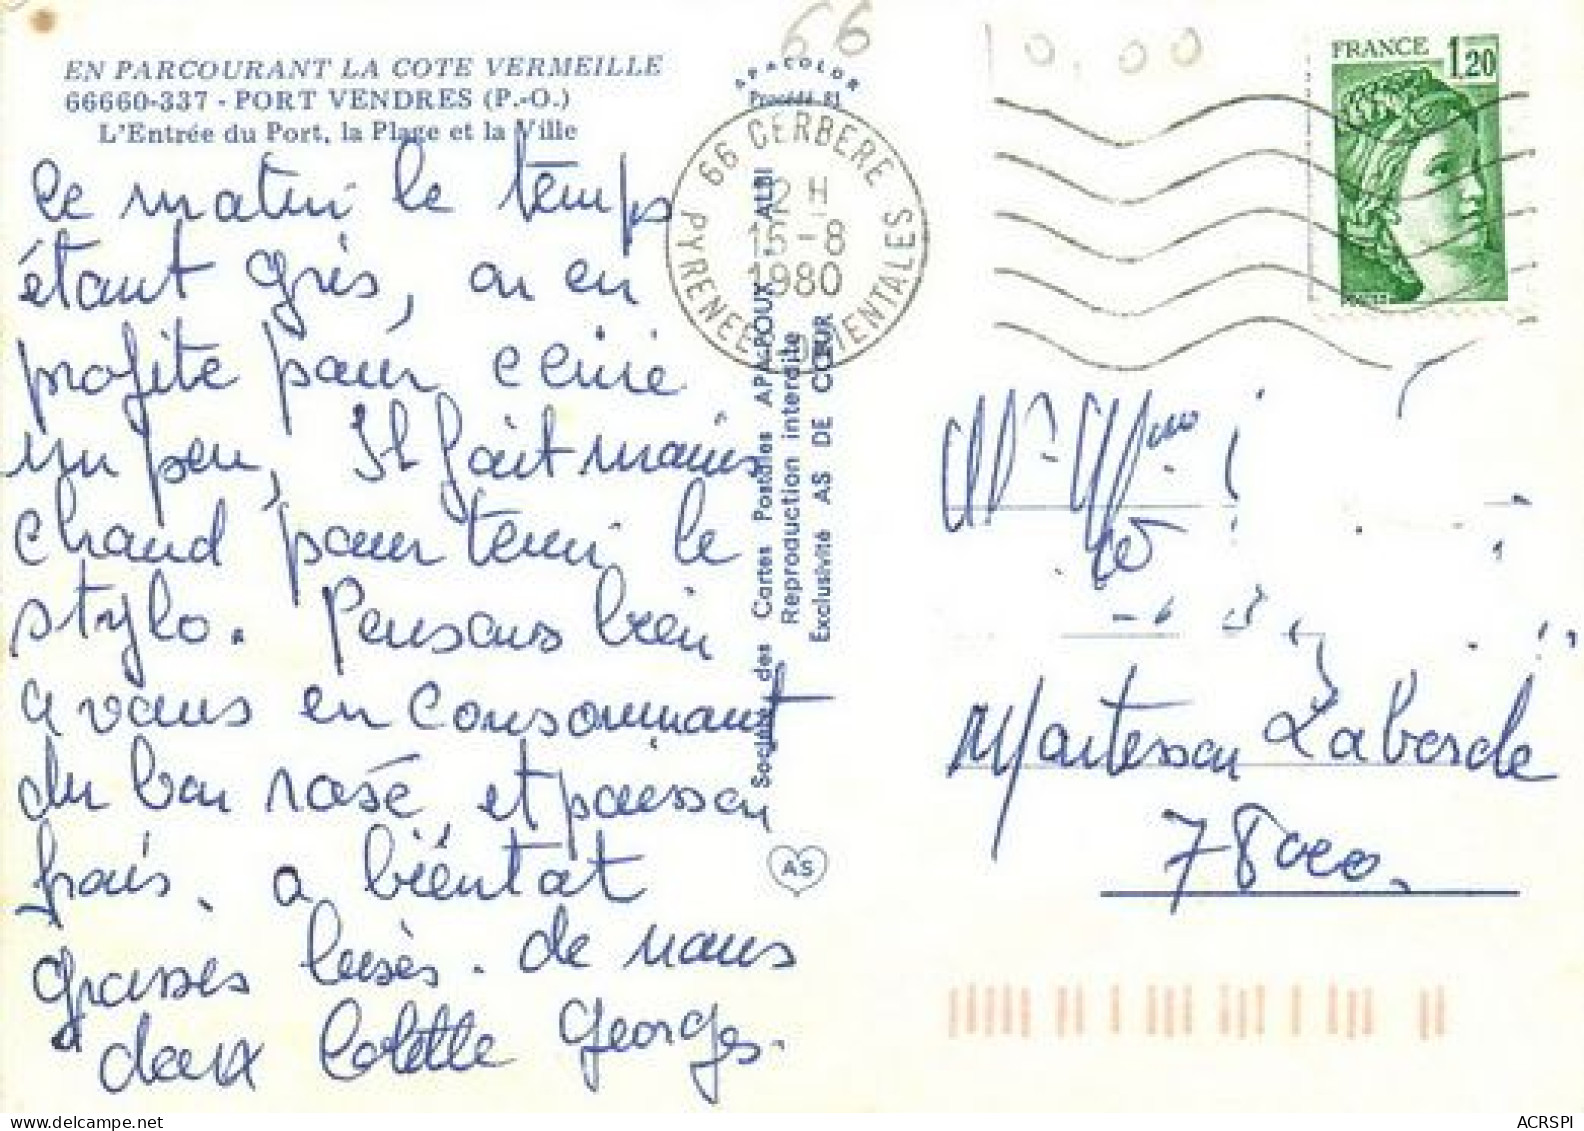 EN PARCOURANT LA COTE VERMEILLE
66660-337 - PORT VENDRES (P.-O.)
L'Entrée du Port, la Plage et la Ville
Ce matin le temps
étant gris, on en
profite pour ecrire
un peu, Il fait moins
chaud pour tenir le
stylo. Pensons bien
a vous en consommant
du bon rosé et poisson
frais. a bientot
grosses bises. de nous
deux Colette Georges.
66
SPACOLOR
Procédé 81
66 CERBERE
12 H
15-8
1980
PYRENEES ORIENTALES
Société des Cartes Postales APA-POUX - ALBI
Reproduction interdite
Exclusivité AS DE CŒUR
AS
10.00
FRANCE 1,20
Mr - Mme
Montesson Laborde
78000.
ACRSPI